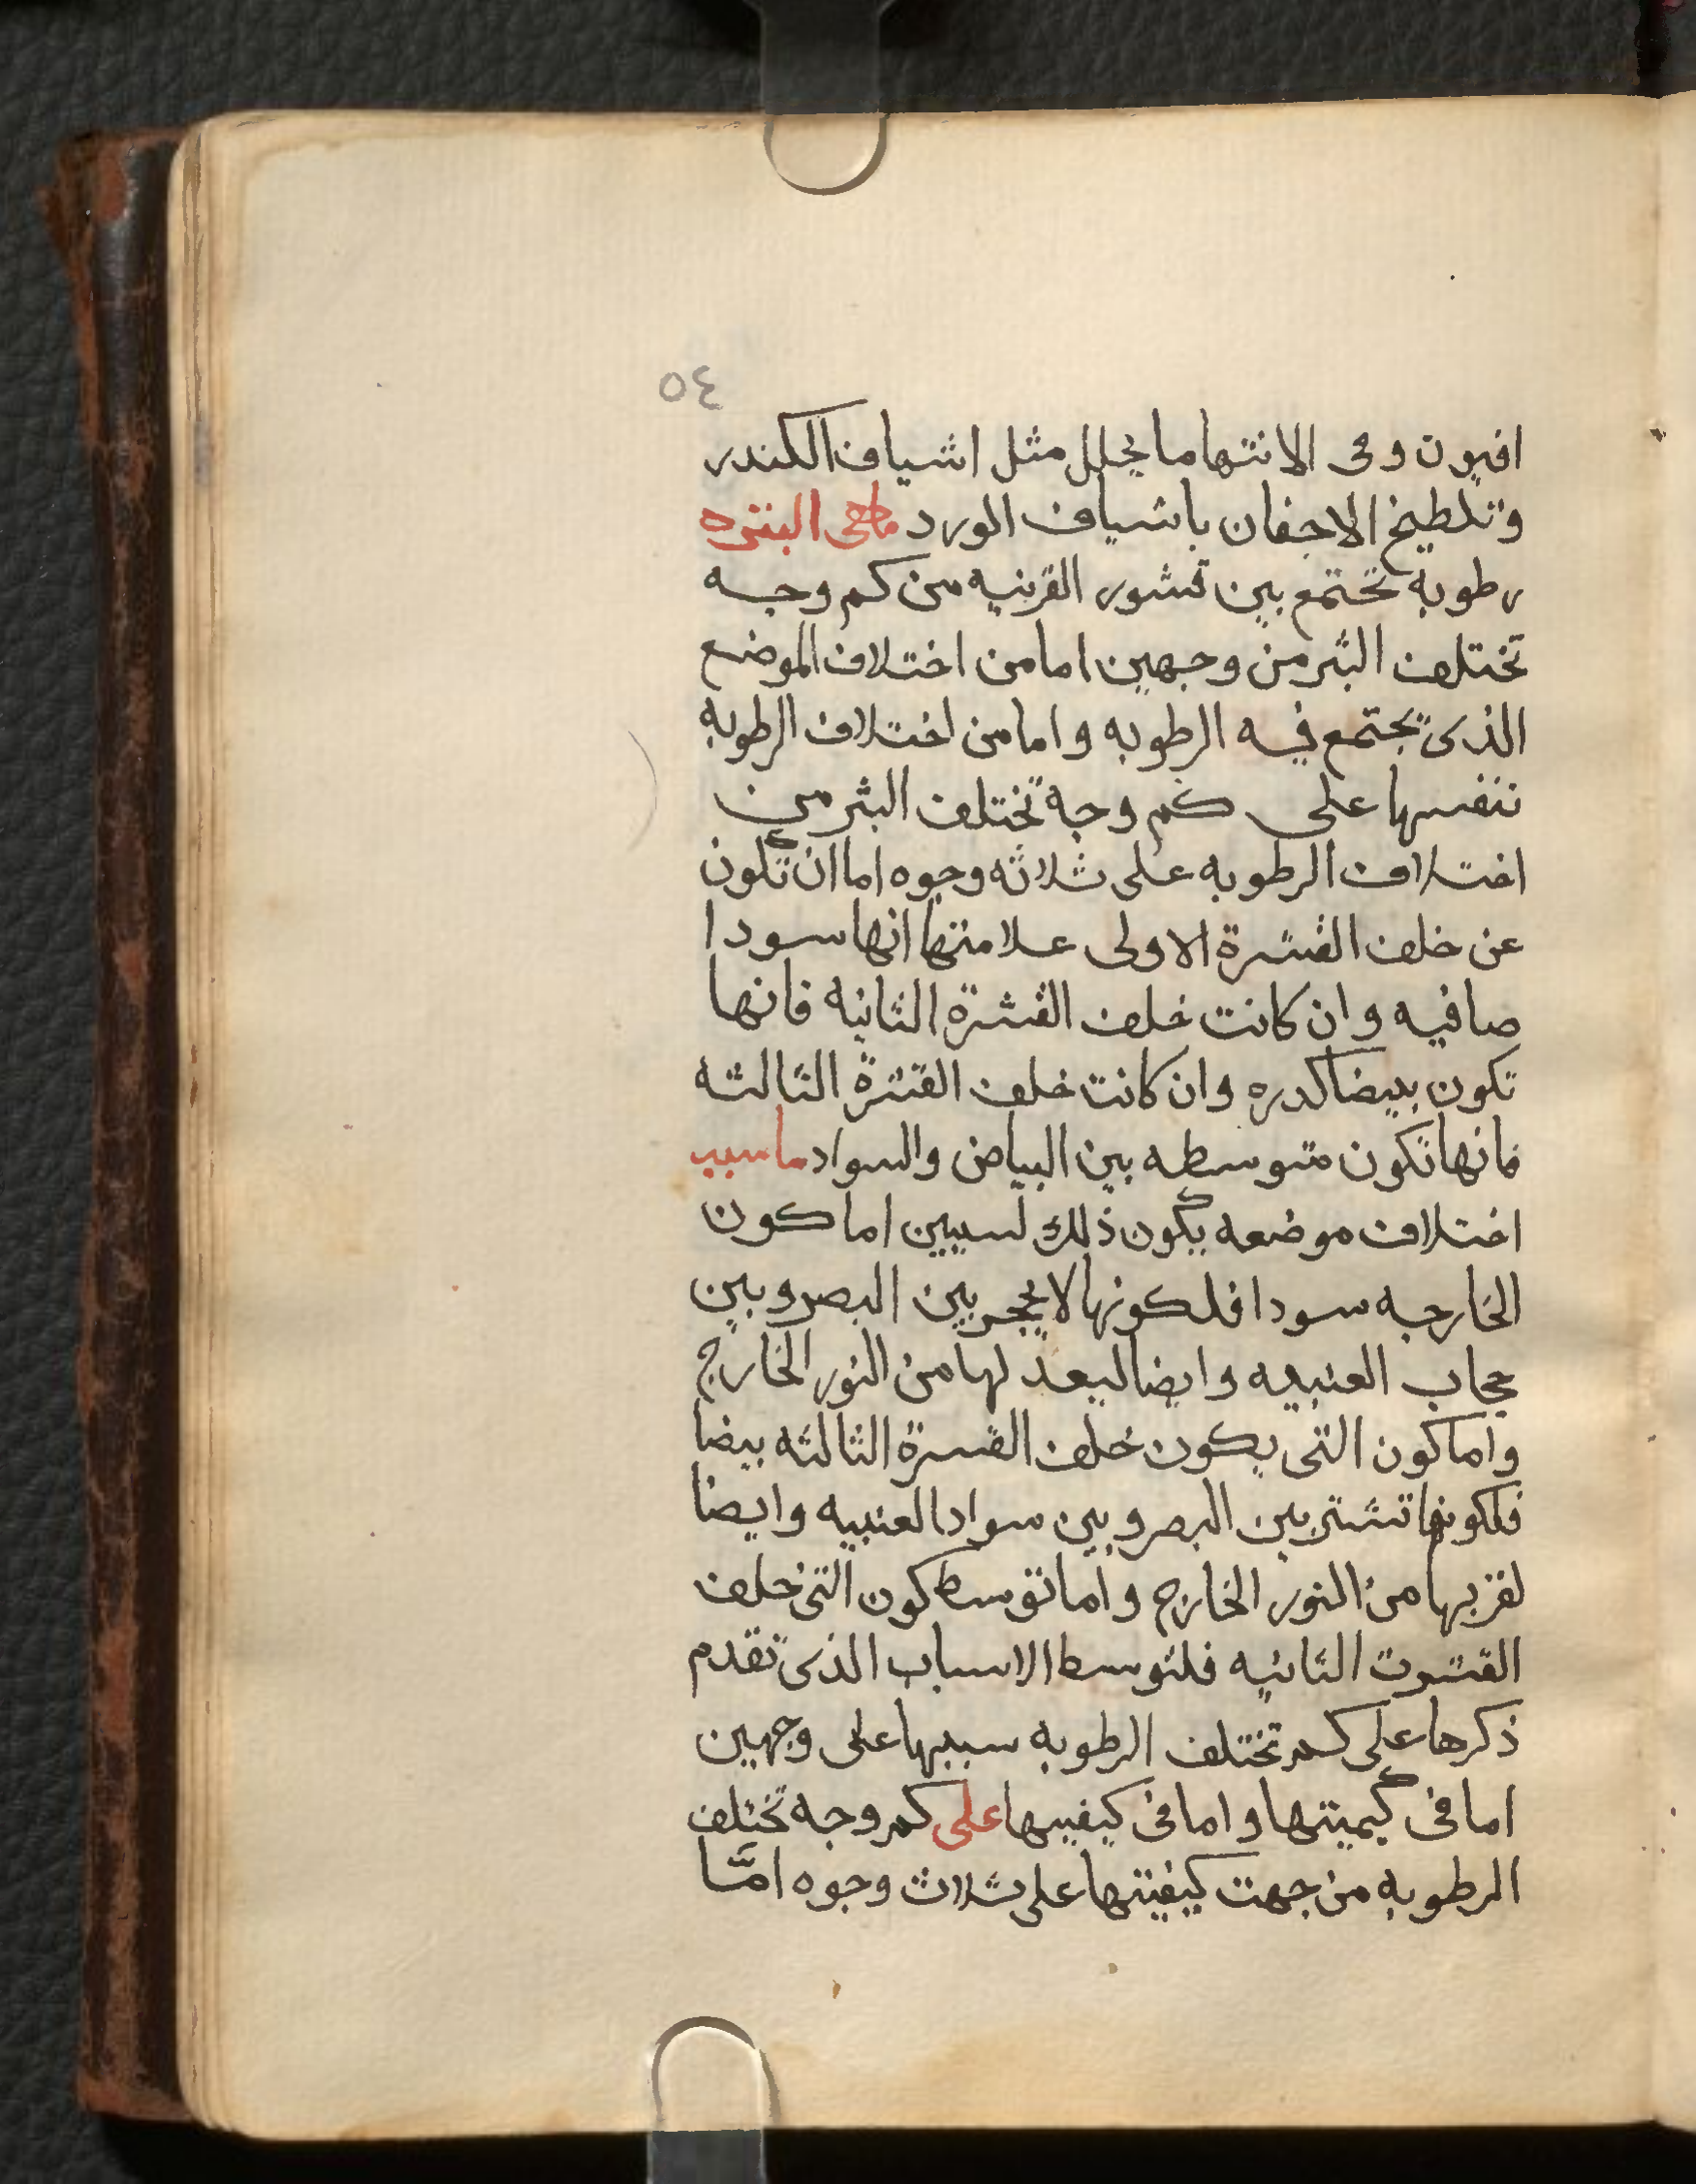 ٥٤
افيون وفى الانتها ما يحلل مثل اشياف الكندر
وتلطيخ الاجفان باشياف الورد ماهى البثره
رطوبه تجتمع بين قشور القرنيه من كم وجه
تختلف البثر من وجهين اما من اختلاف الموضع
الذى يجتمع فيه الرطوبه واما من اختلاف الرطوبه
نفسها على كم وجه تختلف البثر من
اختلاف الرطوبه على ثلاثه وجوه اما ان تكون
عن خلف القشرة الاولى علامتها انها سودا
صافيه وان كانت خلف القشرة الثانيه فانها
تكون بيضا كدره وان كانت خلف القشرة الثالثه
فانها تكون متوسطه بين البياض والسواد ما سبب
اختلاف موضعه يكون ذلك لسببين اما كون
الخارجه سودا فلكونها لا يحجر بين البصر وبين
حجاب العنبيه وايضا لبعد لها من النور الخارج
واما كون التى يكون خلف القسرة الثالثه بيضا
فلكونها تستتر بين البصر وبين سواد العنبيه وايضا
لقربها من النور الخارج واما توسط كون التى خلف
القشرت الثانيه فلتوسط الاسباب الذى تقدم
ذكرها على كم تختلف الرطوبه سببها على وجهين
اما فى كيميتها واما فى كيفيتها على كم وجه تختلف
الرطوبه من جهت كيفيتها على ثلاث وجوه امّا